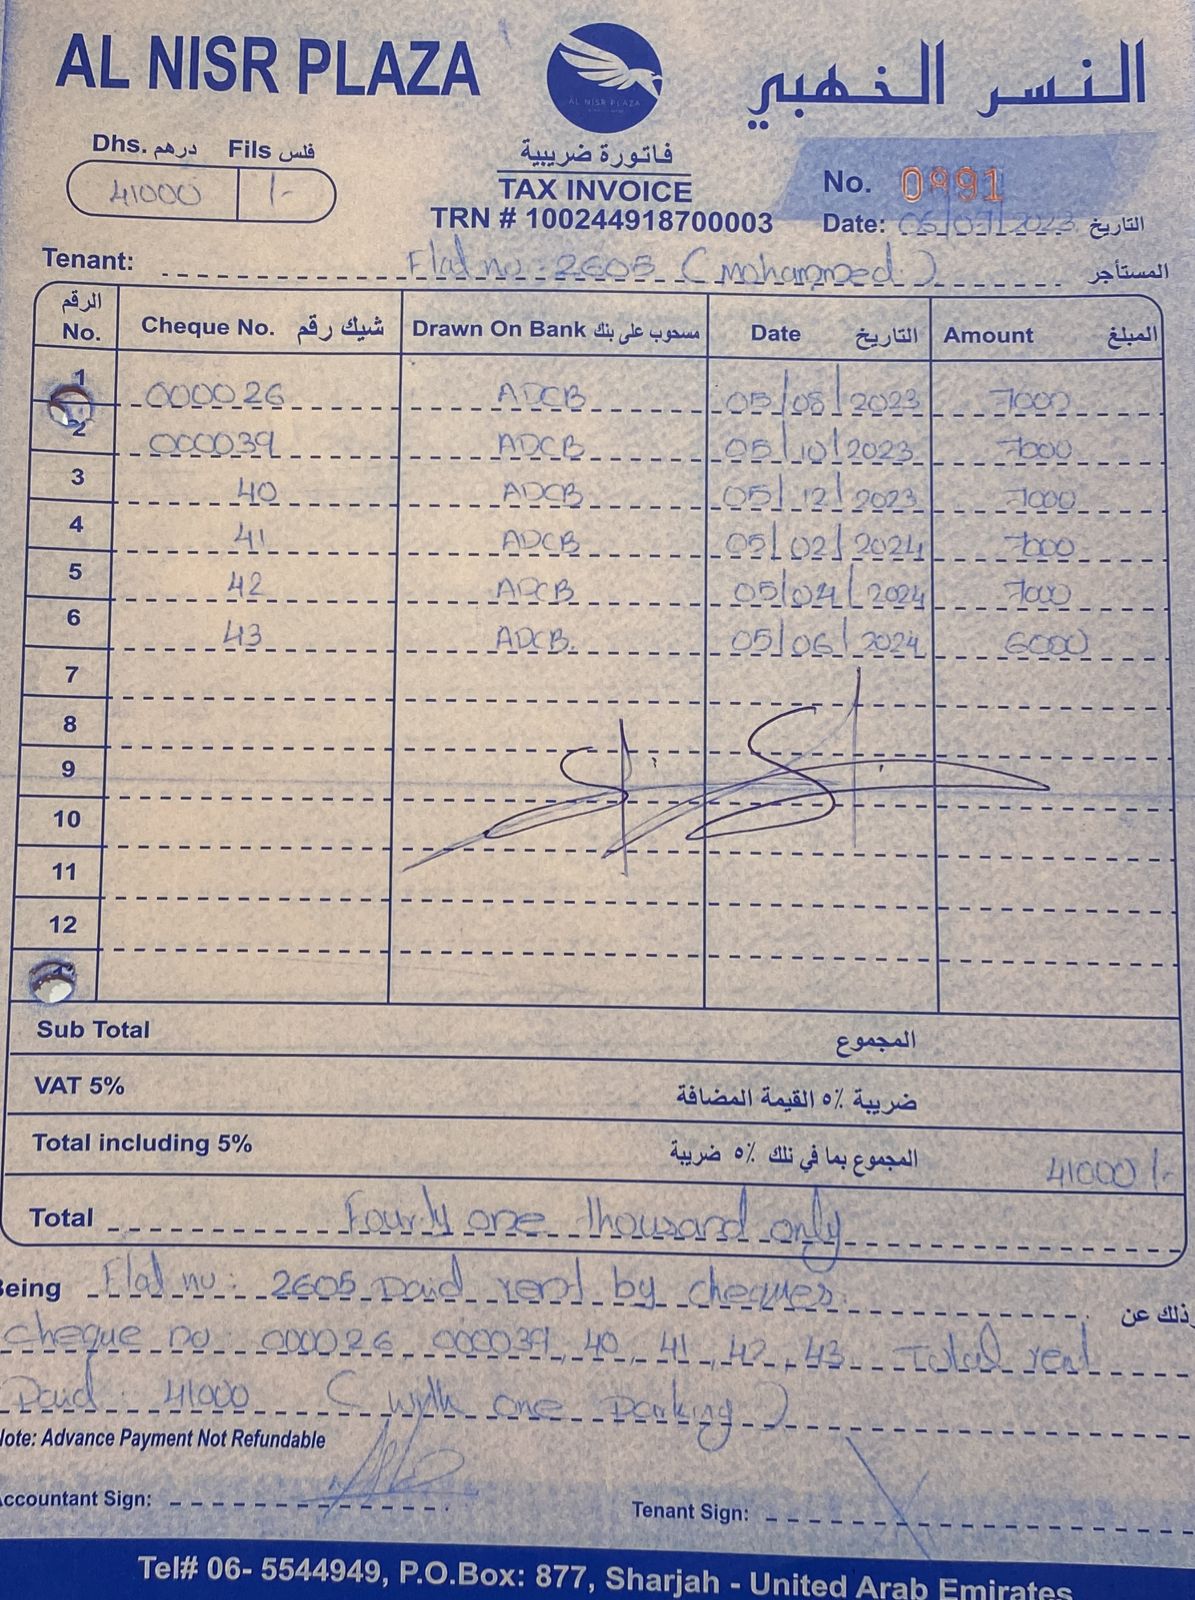 AL NISR PLAZA
AL NISR PLAZA
النسر الذهبي
Dhs. درهم Fils فلس
41000 /-
فاتورة ضريبية
TAX INVOICE
TRN # 100244918700003
No. 0891
Date: 05/07/2023 التاريخ
Tenant: Flat no: 2605 (Mohammed) المستأجر
الرقم No. Cheque No. شيك رقم Drawn On Bank مسحوب على بنك Date التاريخ Amount المبلغ
1 000026 ADCB 05/08/2023 7000
2 000039 ADCB 05/10/2023 7000
3 40 ADCB 05/12/2023 7000
4 41 ADCB 05/02/2024 7000
5 42 ADCB 05/04/2024 7000
6 43 ADCB. 05/06/2024 6000
7
8
9
10
11
12
Sub Total المجموع
VAT 5% ضريبة ٥٪ القيمة المضافة
Total including 5% المجموع بما في تلك ٥٪ ضريبة 41000 /-
Total Fourty one thousand only
Being Flat no: 2605 Paid rent by cheques. وذلك عن
cheque no: 000026, 000039, 40, 41, 42, 43 Total rent
Paid: 41000 (with one parking)
Note: Advance Payment Not Refundable
Accountant Sign:
Tenant Sign:
Tel# 06- 5544949, P.O.Box: 877, Sharjah - United Arab Emirates